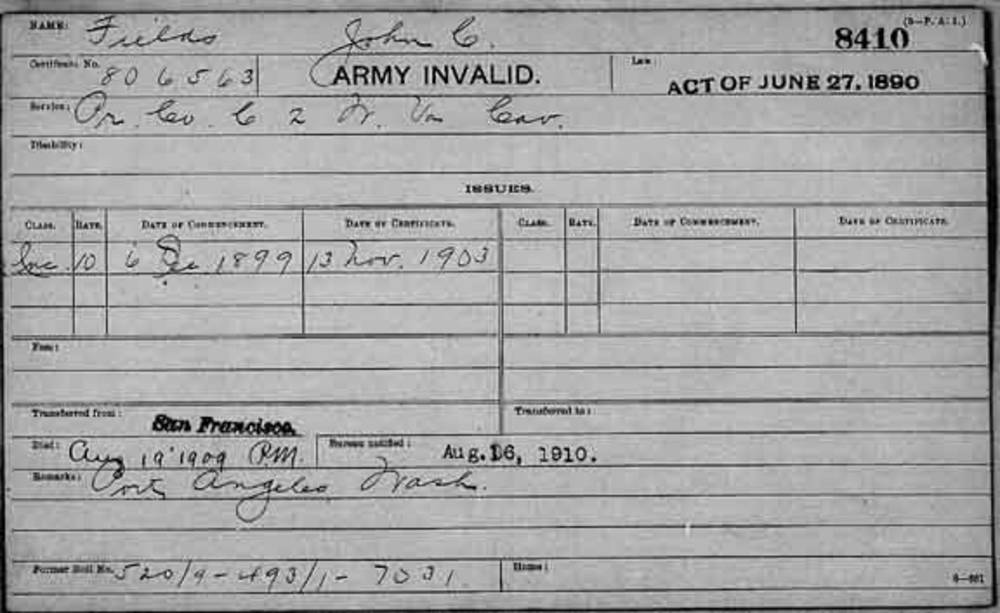 (3—P. A. I.)
NAME: Fields John C. 8410
Certificate No. 806563 ARMY INVALID. Law: ACT OF JUNE 27, 1890
Service: Pr. Co. C 2 W. Va Cav.
Disability:
ISSUES.
CLASS. RATE. DATE OF COMMENCEMENT. DATE OF CERTIFICATE. CLASS. RATE. DATE OF COMMENCEMENT. DATE OF CERTIFICATE.
Inc. 10 6 Dec 1899 13 Nov. 1903
Fees:
Transferred from: San Francisco. Transferred to:
Died: Aug 19 1909 P.M. Bureau notified: Aug. 16, 1910.
Remarks: Port Angeles Wash.
Former Roll No. 520/9-493/1-7031 Home: